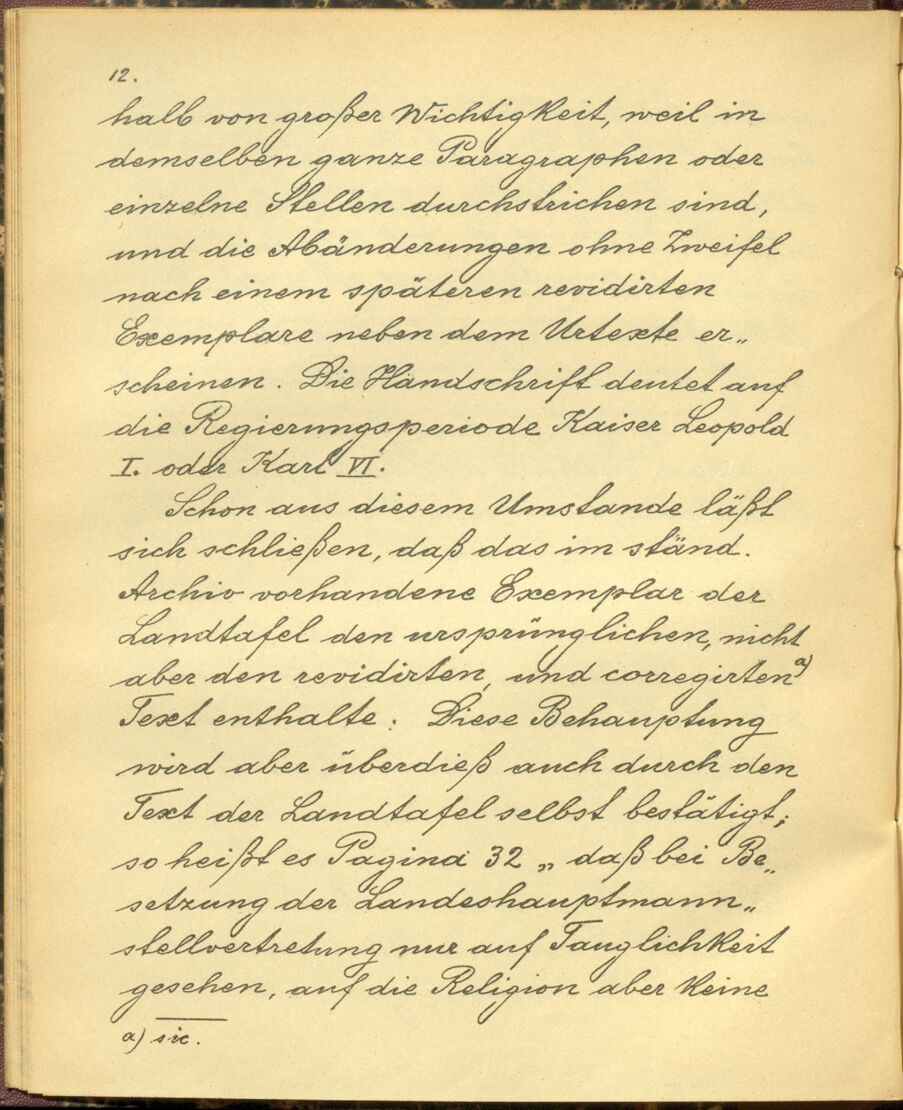 12.
halb von großer Wichtigkeit, weil in
demselben ganze Paragraphen oder
einzelne Stellen durchstrichen sind,
und die Abänderungen ohne Zweifel
nach einem späteren revidirten
Exemplare neben dem Urtexte er„
scheinen. Die Handschrift deutet auf
die Regierungsperiode Kaiser Leopold
I. oder Karl VI.
Schon aus diesem Umstande läßt
sich schließen, daß das im ständ.
Archiv vorhandene Exemplar der
Landtafel den ursprünglichen, nicht
aber den revidirten, und corregirten a)
Text enthalte. Diese Behauptung
wird aber überdieß auch durch den
Text der Landtafel selbst bestätigt;
so heißt es Pagina 32 „daß bei Be„
setzung der Landeshauptmann„
stellvertretung nur auf Tauglichkeit
gesehen, auf die Religion aber keine
a) sic.